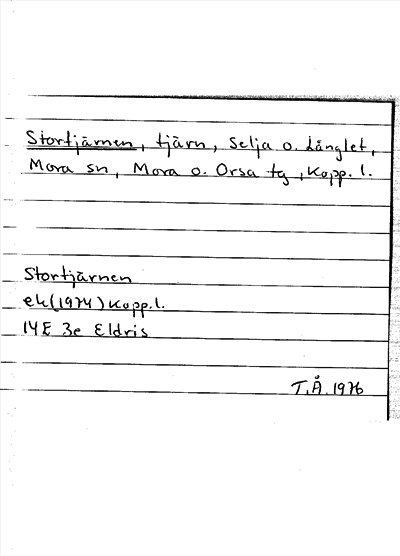 Stortjärnen, tjärn, Selja o. Långlet,
Mora sn, Mora o. Orsa tg, Kopp. l.
Stortjärnen
ek(1974) Kopp.l.
14E 3e Eldris
T.Å. 1976